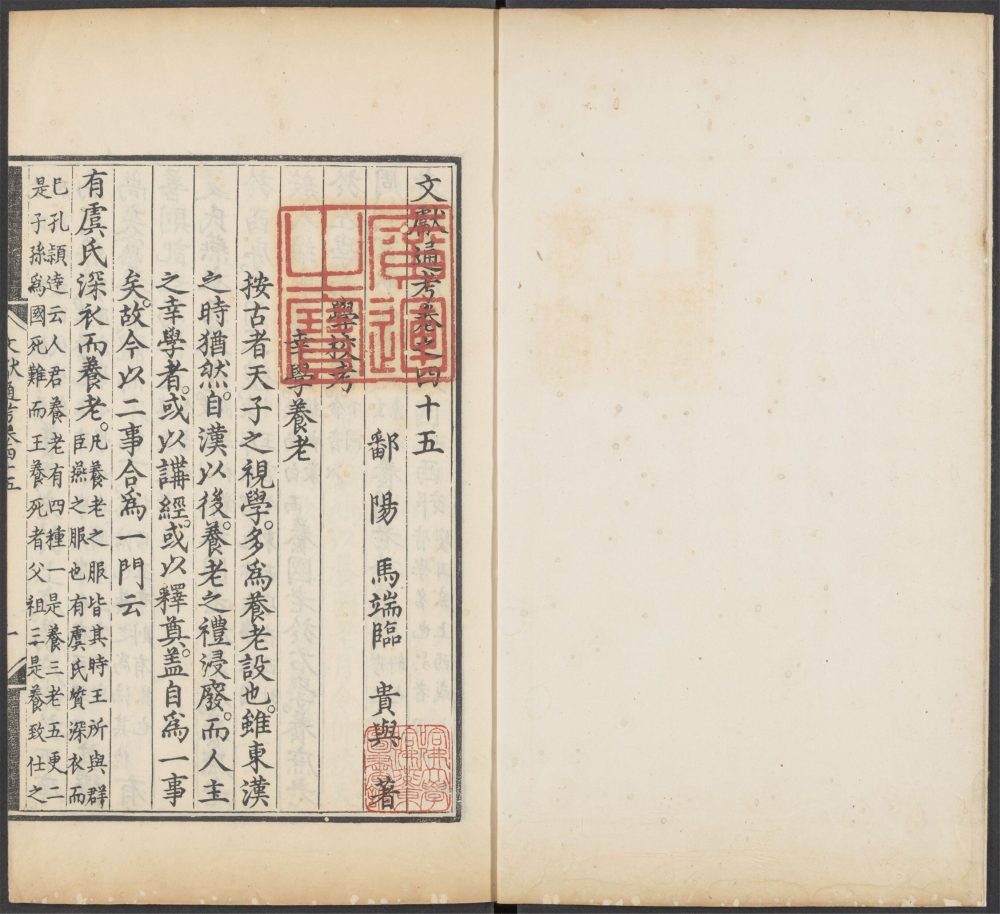 文獻通考卷之四十五
鄱陽 馬端臨 貴與 著
學校考
幸學養老
按古者天子之視學。多爲養老設也。雖東漢
之時猶然。自漢以後。養老之禮浸廢。而人主
之幸學者。或以講經。或以釋奠。蓋自爲一事
矣。故今以二事合爲一門云
有虞氏深衣而養老。凡養老之服皆其時王所與群
臣燕之服也有虞氏質深衣而
已孔頴逹云人君養老有四種一是養三老五更二
是子孫爲國死難而王養死者父祖三是養致仕之
文獻通考卷四十五
一